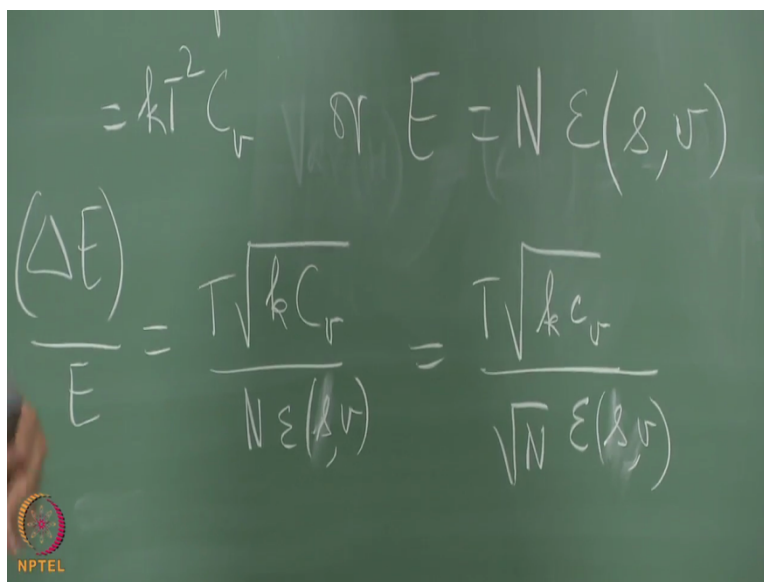 = kT² C_v or E = N ε(s, v)
(ΔE)/E = T√(k C_v) / N ε(s, v) = T√(k c_v) / √N ε(s, v)
NPTEL